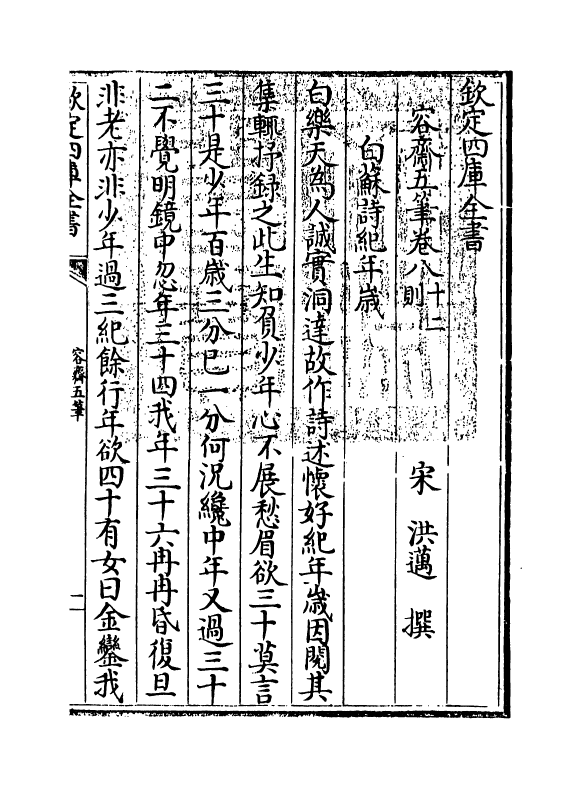 欽定四庫全書
容齋五筆卷八十二則
宋 洪邁 撰
白蘇詩紀年歲
白樂天為人誠實洞達故作詩述懷好紀年歲因閱其
集輒抒錄之此生知負少年心不展愁眉欲三十莫言
三十是少年百歲三分已一分何況纔中年又過三十
二不覺明鏡中忽年三十四我年三十六冉冉昏復旦
非老亦非少年過三紀餘行年欲四十有女曰金鑾我
欽定四庫全書
容齋五筆
一